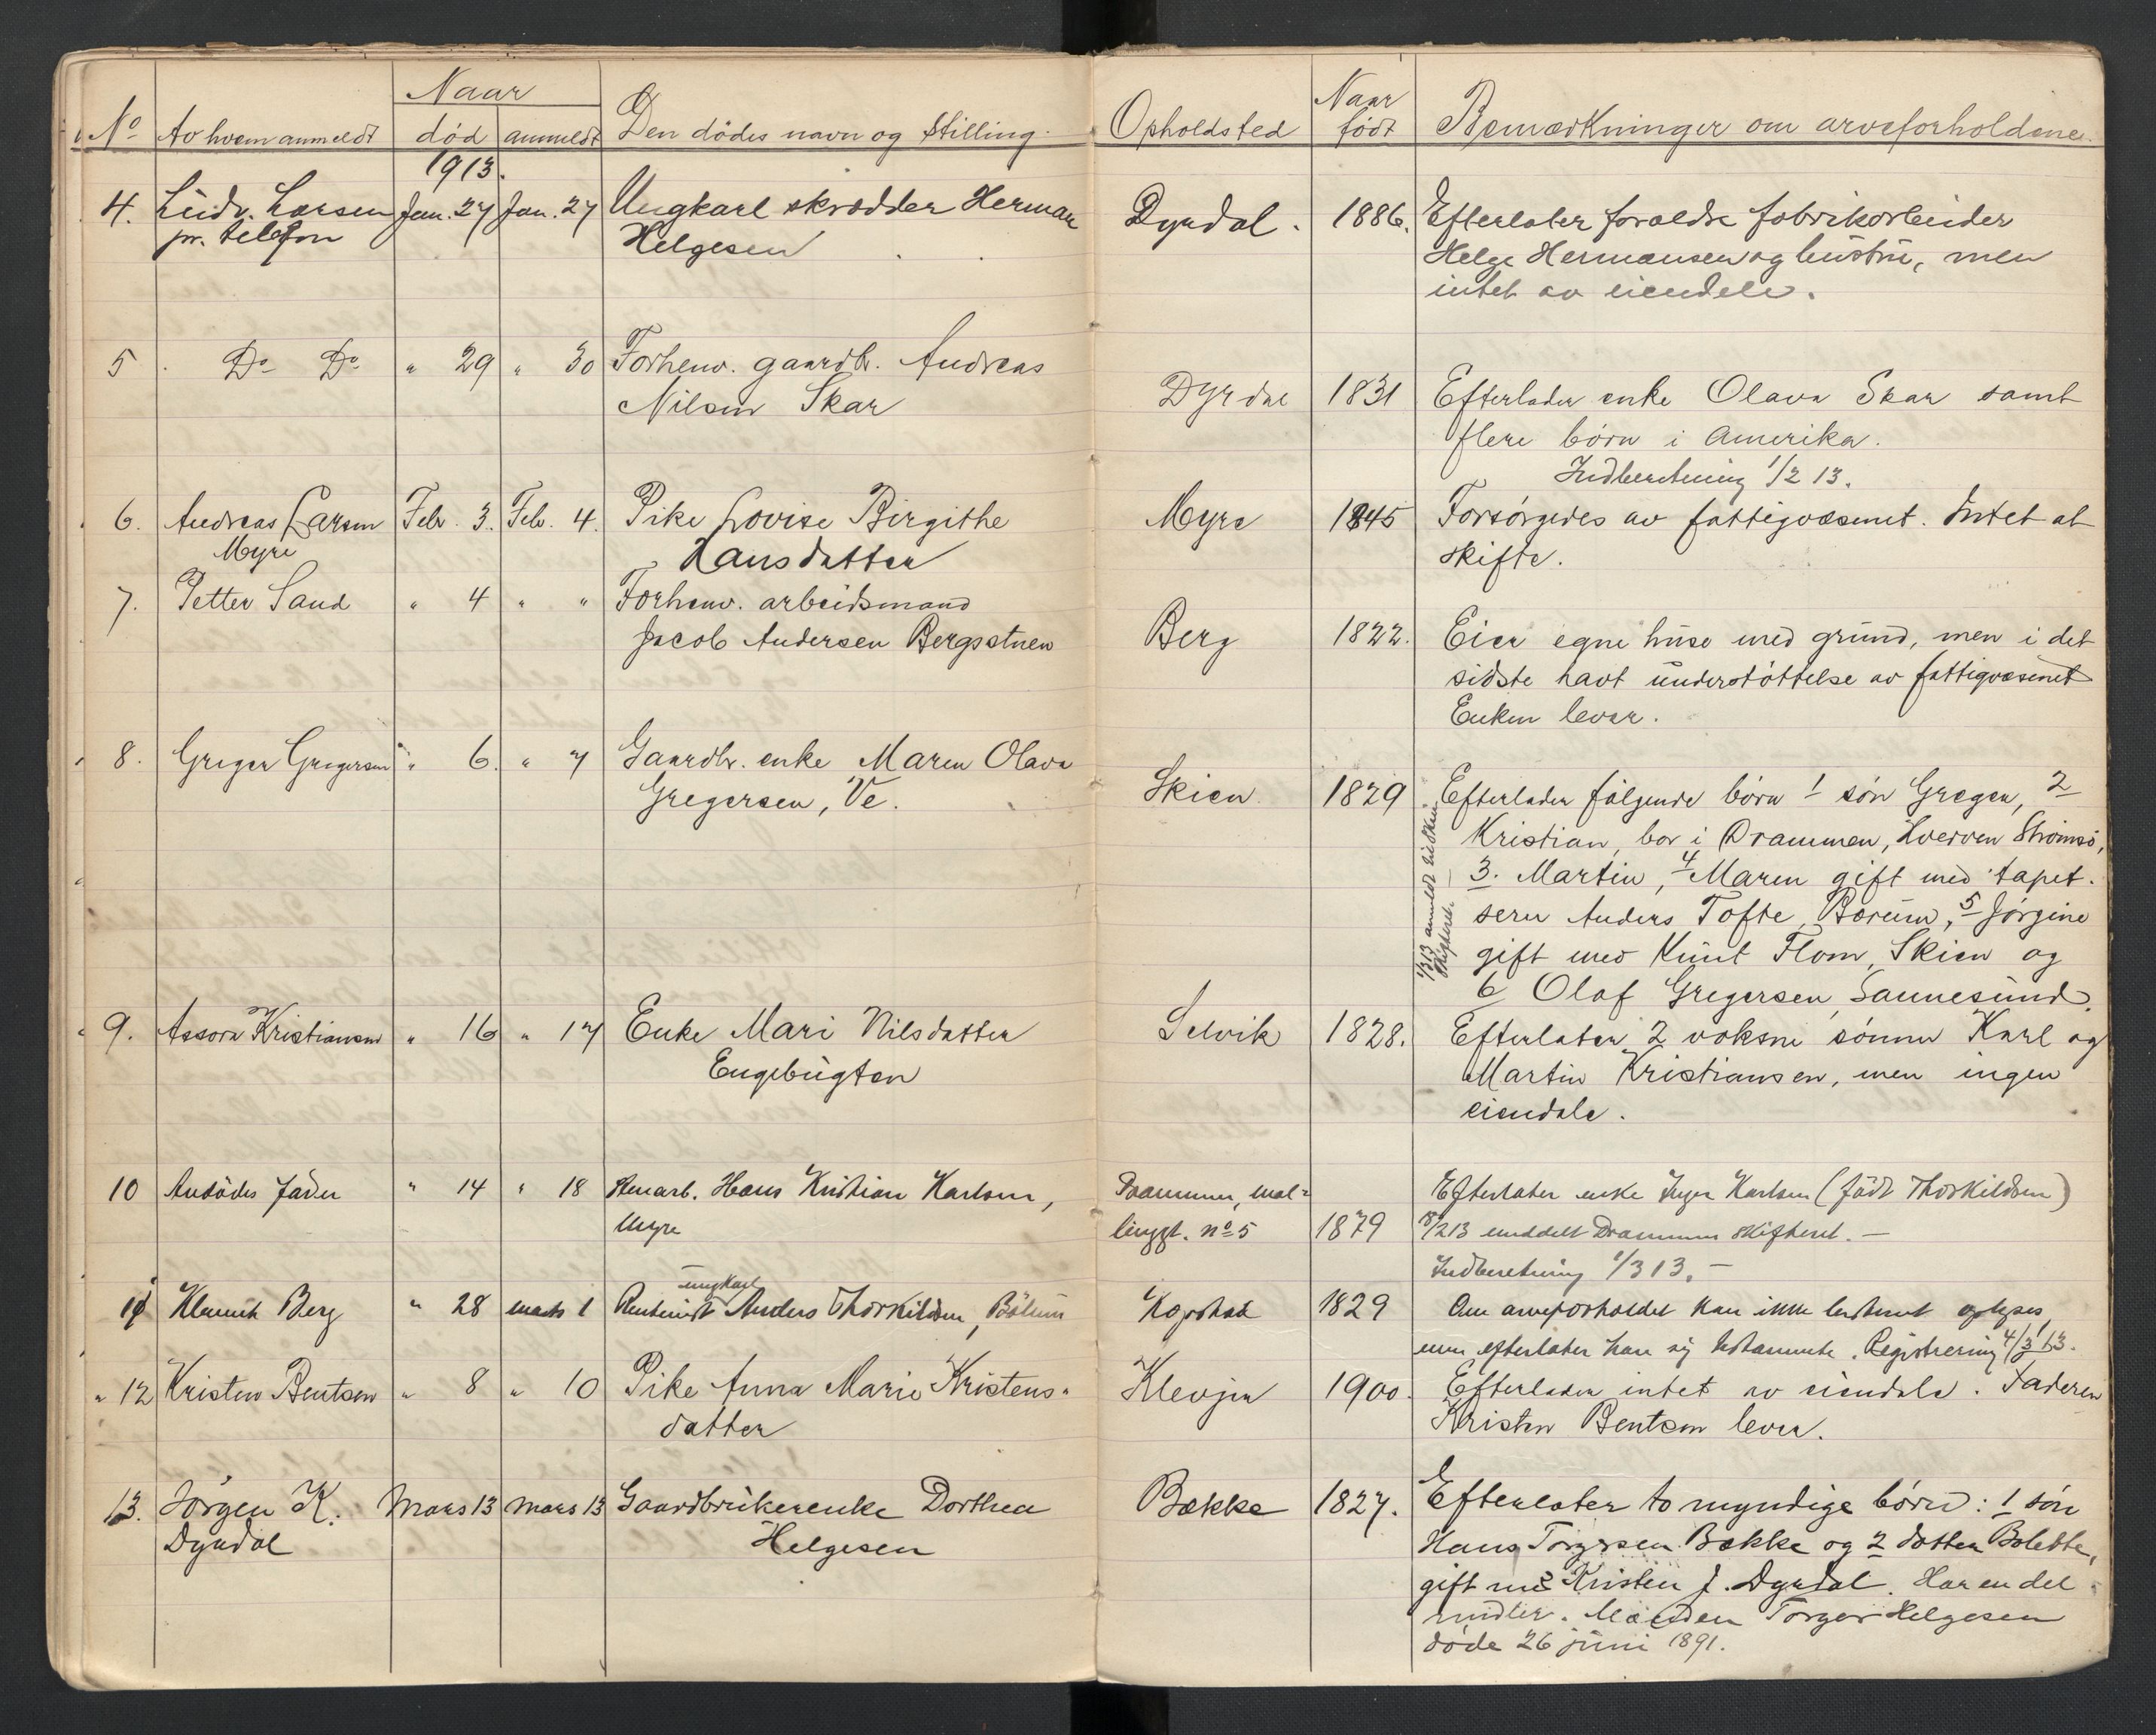 Naar
Naar
No Av hvem anmeldt død anmeldt Den dödes navn og Stilling. Opholdsted födt Bemærkninger om arveforholdene.
1913.
4. Ludv. Larsen Jan. 27 Jan. 27 Ungkarl skrædder Herman Dyrdal. 1886. Efterlater forældre fabrikarbeider
pr. telefon Helgesen Helge Hermansen og hustru, men
intet av eiendele.
5 Do Do " 29 " 30 Forhenv. gaardbr. Andreas
Nilsen Skar Dyrdal 1831 Efterlader enke Olava Skar samt
flere börn i Amerika.
Indberetning 1/2 13.
6. Andreas Larsen Febr. 3. Feb. 4. Pike Lovise Birgithe Myra 1845 Forsörgedes av fattigvæsenet. Intet at
Myre Hansdatter skifte.
7. Petter Sand " 4 " " Forhenv. arbeidsmand
Jacob Andersen Bergsstuen Berg 1822. Eier egne huse med grund, men i det
sidste havt understöttelse av fattigvæsenet
Enken lever.
8. Greger Gregersen " 6. " 7 Gaardbr. enke Maren Olava
Gregersen, Ve. Skien 1829 Efterlader fölgende börn 1 sön Greger, 2
Kristian, bor i Drammen, Hverven Strömsö,
3. Martin, 4 Maren gift med tapet-
serer Anders Tofte, Bærum, 5 Jörgine
gift med Knut Flom, Skien og
6 Olaf Gregersen, Sannesund.
1/3 13 anmeldt til Skien
skifteret.
9. Assora Kristiansen " 16 " 17 Enke Mari Nilsdatter Selvik 1828. Efterlater 2 voksne sönner Karl og
Engebugten Martin Kristiansen, men ingen
eiendele.
10 Avdödes fader " 14 " 18 Stenarb. Hans Kristian Karlsen, Drammen, mal- Efterlater enke Inger Karlsen (född Thorkildsen)
Myre linggt. no 5 1879 18/2 13 meddelt Drammens skifteret. —
Indberetning 1/3 13. —
ungkarl
11 Klemet Berg " 28 marts 1 Rentenist Anders Thorkildsen, Bölum Kopstad 1829 Om arveforholdet kan ikke bestemt oplyses,
men efterlater han sig testamente. Registrering 4/3 13.
12 Kristen Bentsen " 8 " 10 Pike Anna Marie Kristens- Klevjer 1900. Efterlader intet av eiendele. Faderen
datter Kristen Bentsen lever.
13. Jörgen K. Mars 13 mars 13 Gaardbrukerenke Dorthea Bække 1827. Efterlater to myndige börn: 1 sön
Dyrdal Helgesen Hans Torgersen Bække og 2 datter Bolette,
gift med Kristen J. Dyrdal. Har en del
midler. Manden Torger Helgesen
döde 26 juni 1891.